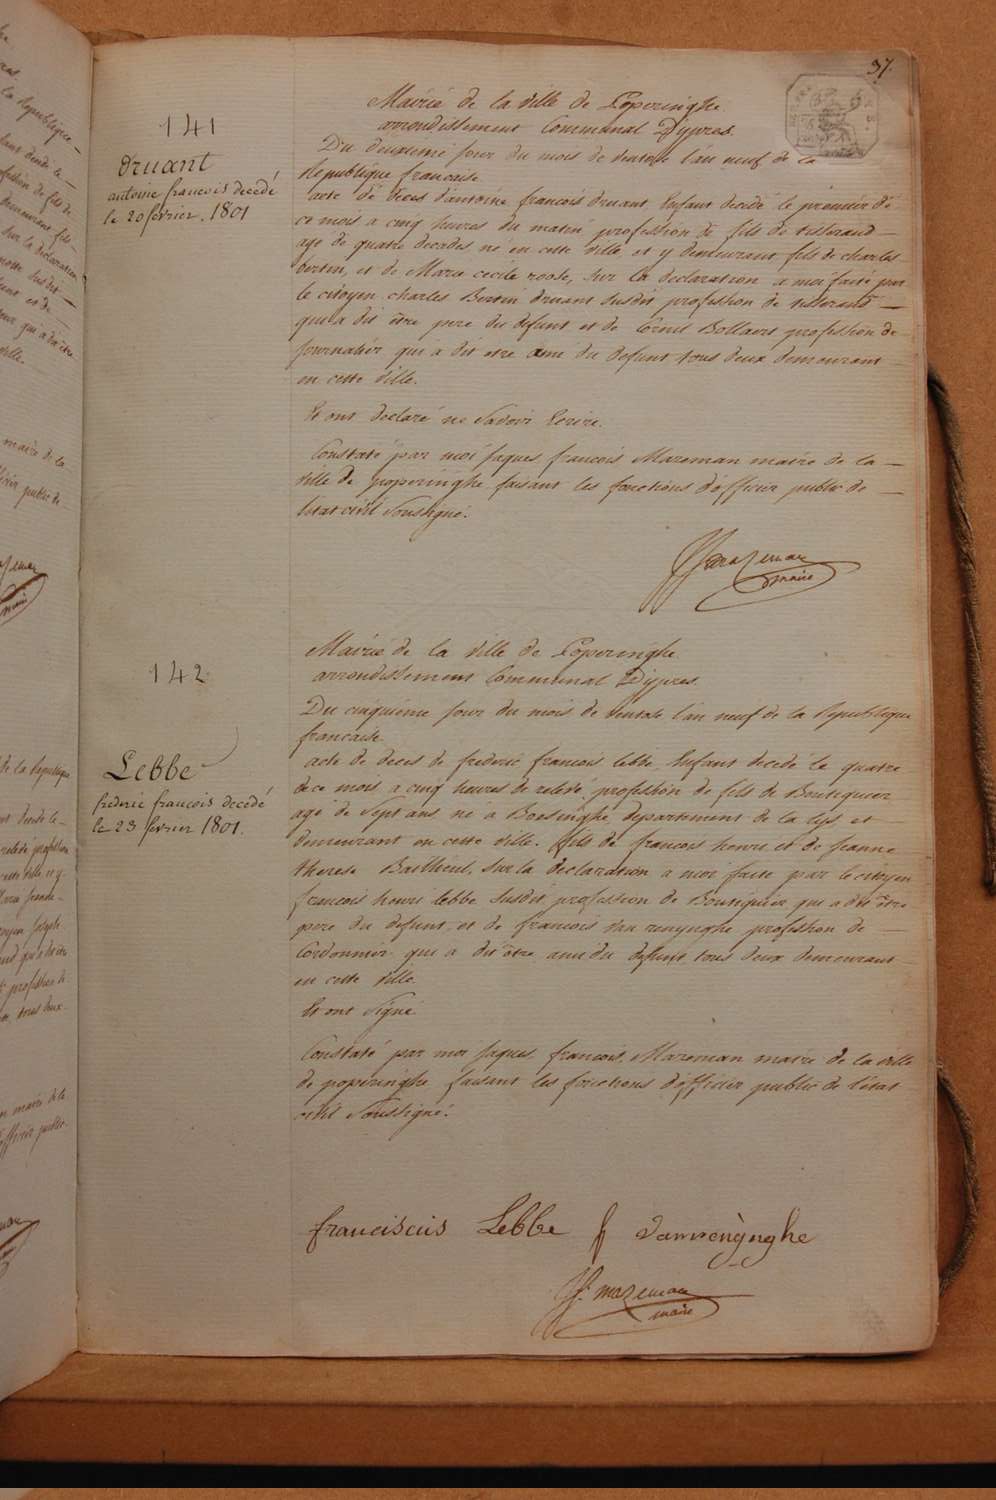 37.
141
druant
antoine francois decedé
le 20 fevrier. 1801
Mairie de la ville de Poperinghe
arrondissement Communal D'ypres.
Du deuxieme jour du mois de ventose l'an neuf de la
Republique francaise
acte de deces d'antoine francois druant, Enfant decedé le premier de
ce mois a cinq heures du matin profession de fils de tisserand
agé de quatre decades né en cette ville et y demeurant, fils de charles
bertin, et de Marie cecile roose, sur la declaration a moi faite par
le citoyen charles Bertin druant susdit profession de tisserand
qui a dit être pere du defunt et de Cornil Bollaert profession de
journalier qui a dit etre ami du defunt tous deux demeurant
en cette ville.
Et ont declaré ne savoir Ecrire.
Constaté par moi jaques francois Mazeman maire de la
ville de poperinghe faisant les fonctions d'officier public de
l'etat civil soussigné.
Mazeman
maire
142
Lebbe
frederic francois decedé
le 23 fevrier 1801.
Mairie de la ville de Poperinghe
arrondissement Communal D'ypres.
Du cinquieme jour du mois de ventose l'an neuf de la Republique
francaise
acte de deces de frederic francois lebbe Enfant decedé le quatre
de ce mois a cinq heures de relevé, profession de fils de Boutiquier
agé de sept ans né à Boesinghe departement de la lys et
demeurant en cette ville. fils de francois henri et de jeanne
therese Bailhieul, sur la declaration a moi faite par le citoyen
francois henri lebbe susdit profession de Boutiquier qui a dit être
pere du defunt, et de francois van renynghe profession de
Cordonnier qui a dit être ami du defunt tous deux demeurant
en cette ville.
Et ont signé.
Constaté par moi jaques francois Mazeman maire de la ville
de poperinghe faisant les fonctions d'officier public de l'etat
civil soussigné.
franciscus Lebbe f vanrenÿnghe
mazeman
maire